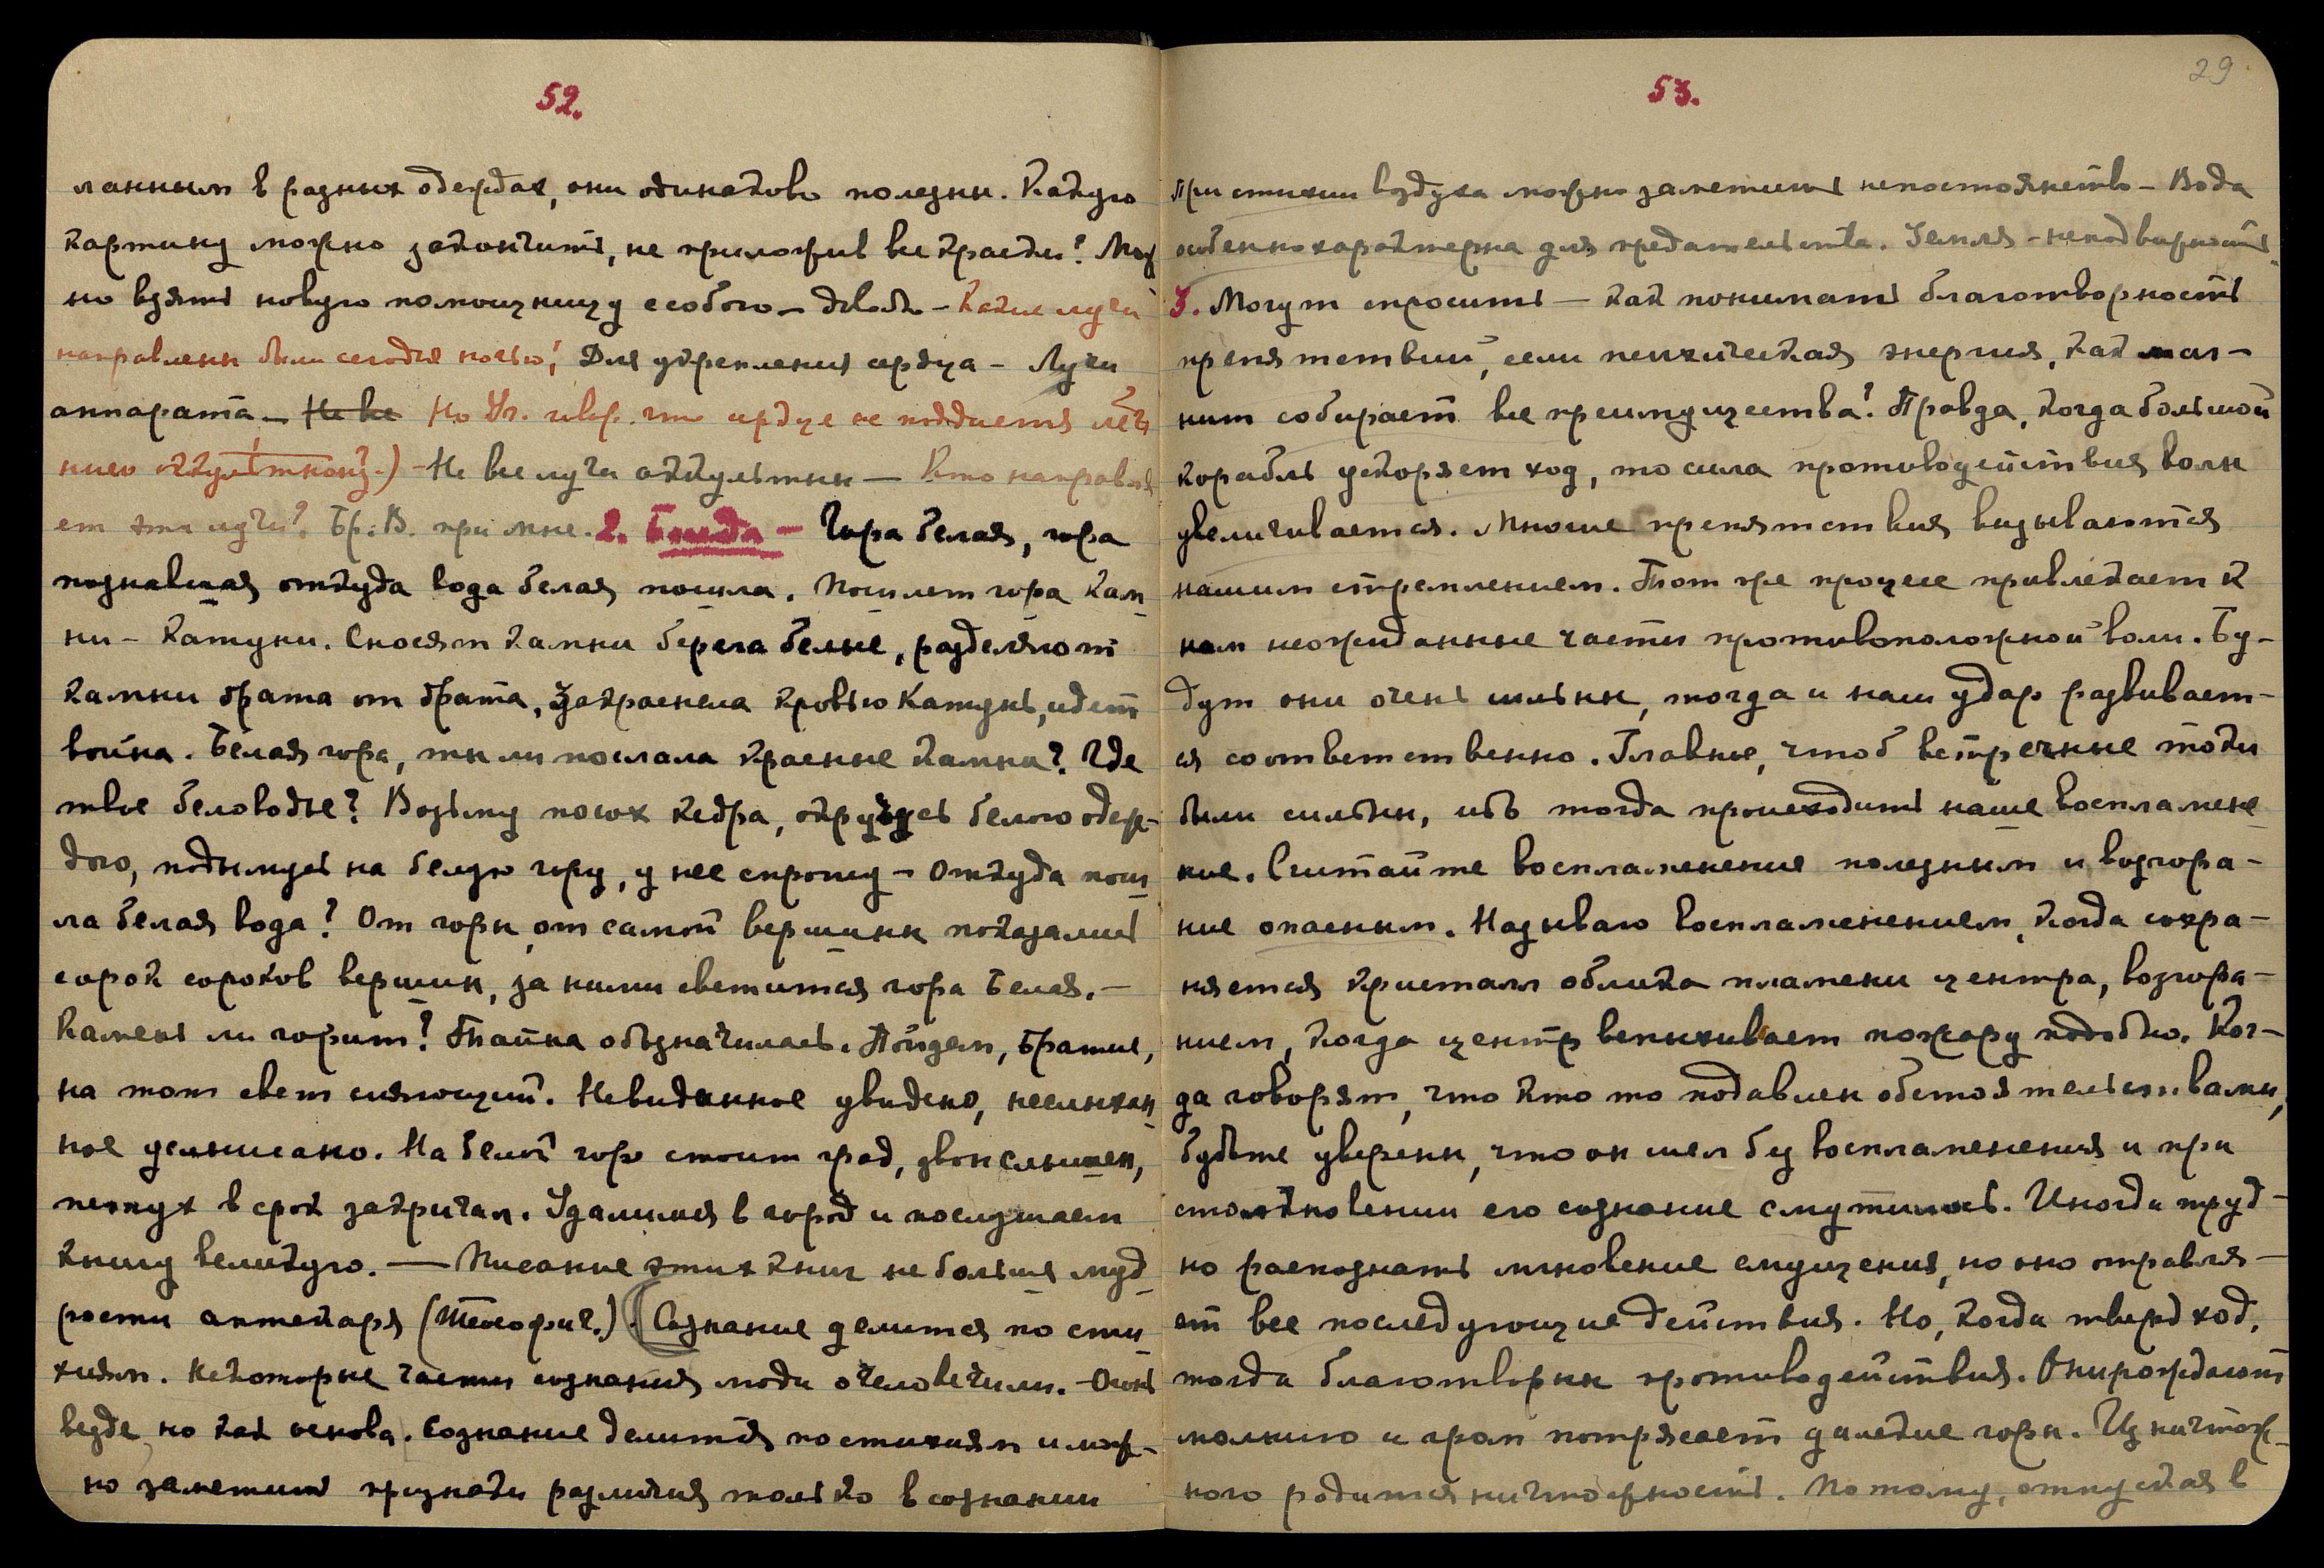 52.
ланным в разных одеждах, они одинаково полезны. Какую
картину можно закончить, не приложив все краски? Мож
но взять новую помощницу с собою – – Какие лучи
направлены были сегодня ночью? Для укрепления сердца – Лучи
аппарата – Не все Но Уч. говор. что сердце не поддается лече
нию оккультному.) – Не все лучи оккультны – Кто направля
ет эти лучи? Бр. В. при мне. 2. Беседа – Гора белая, гора
познавшая откуда вода белая пошла. Пошлет гора кам
ни – катуни. Сносят камни берега белые, разделяют
камни брата от брата, Закраснела кровью Катунь, идет
война. Белая гора, ты ли послала красные камни? Где
твое беловодье? Возьму посох кедра, окручусь белою одеж-
дою, подымусь на белую гору, у нее спрошу – Откуда пош
ла белая вода? От горы, от самой вершины показались
сорок сороков вершин, за ними светится гора Белая. –
Камень ли горит? Тайна обозначилась. Пойдем, Братие,
на тот свет сияющий. Невиданное увидено, неслыхан
ное услышано. На белой горе стоит град, звон слышен,
петух в срок закричал. Удалимся в город и послушаем
книгу великую. — Писание этих книг не больше муд
рости аптекаря (Теософич.). Сознание делится по сти
хиям. Некоторые части сознания люди очеловечили. – Огонь
везде, но как основа. Сознание делится по стихиям и мож-
но заметить признаки различия только в сознании
53.
29
При стихии воздуха можно заметить непостоянство – Вода
особенно характерна для предательства. Земля – неподвижность.
3. Могут спросить — как понимать благотворность
препятствий, если психическая энергия, как маг-
нит собирает все преимущества? Правда, когда большой
корабль ускоряет ход, то сила противодействия волн
увеличивается. Многие препятствия вызываются
нашим стремлением. Тот же процесс привлекает к
нам неожиданные части противоположной воли. Бу-
дут они очень сильны, тогда и наш удар развивает-
ся соответственно. Главное, чтоб встречные токи
были сильны, ибо тогда происходить наше воспламене
ние. Считайте воспламенение полезным и возгора-
ние опасным. Называю воспламенением, когда сохра-
няется кристалл облика пламени центра, возгора-
нием, когда центр вспыхивает пожару подобно. Ког-
да говорят, что кто то подавлен обстоятельствами,
будьте уверены, что он шел без воспламенения и при
столкновении его сознание смутилось. Иногда труд-
но распознать мгновение смущения, но оно отравля-
ет все последующие действия. Но, когда тверд ход,
тогда благотворны противодействия. Они рождают
молнию и гром потрясает далекие горы. Из ничтож-
ного родится ничтожность. Потому, отпуская в